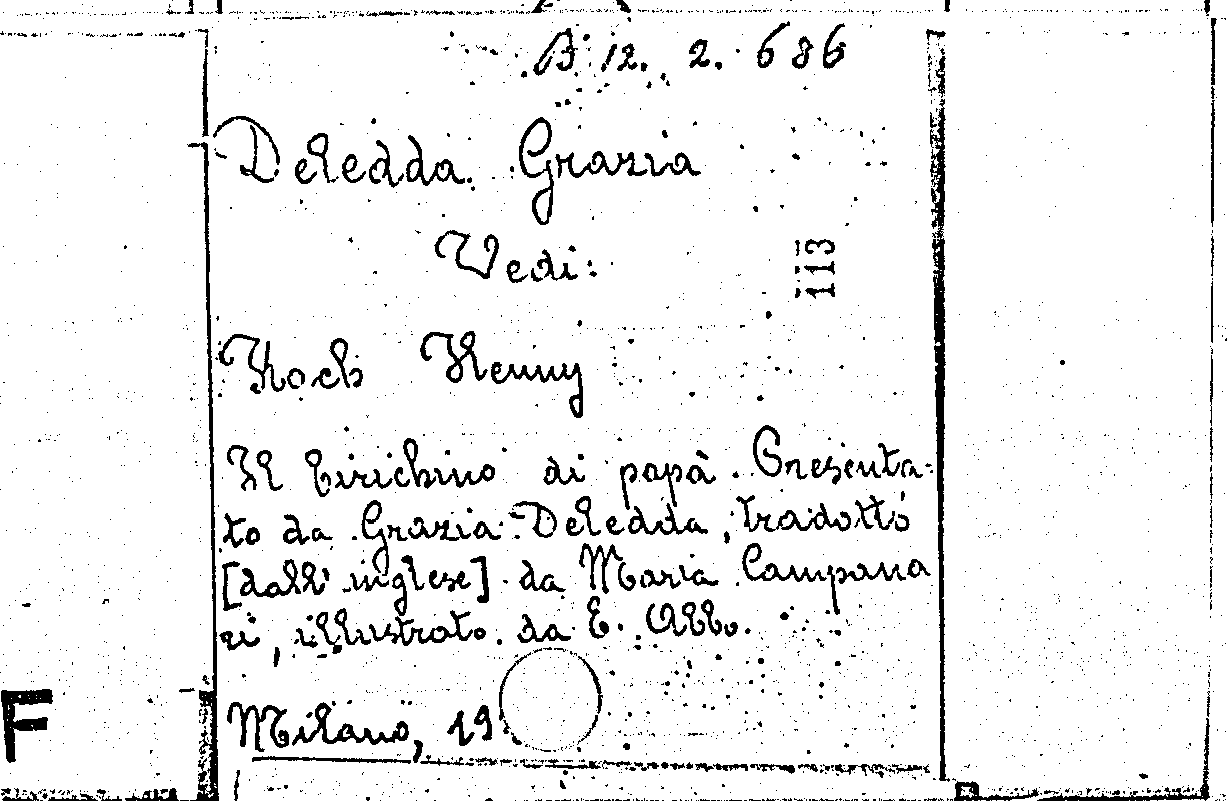 B 12. 2. 686
Deledda Grazia
113
Vedi:
Koch Henny
Il birichino di papà. Presenta-
to da Grazia Deledda, tradotto
[dall' inglese] da Maria Campana
ri, illustrato da E. Abbo.
Milano, 19
F